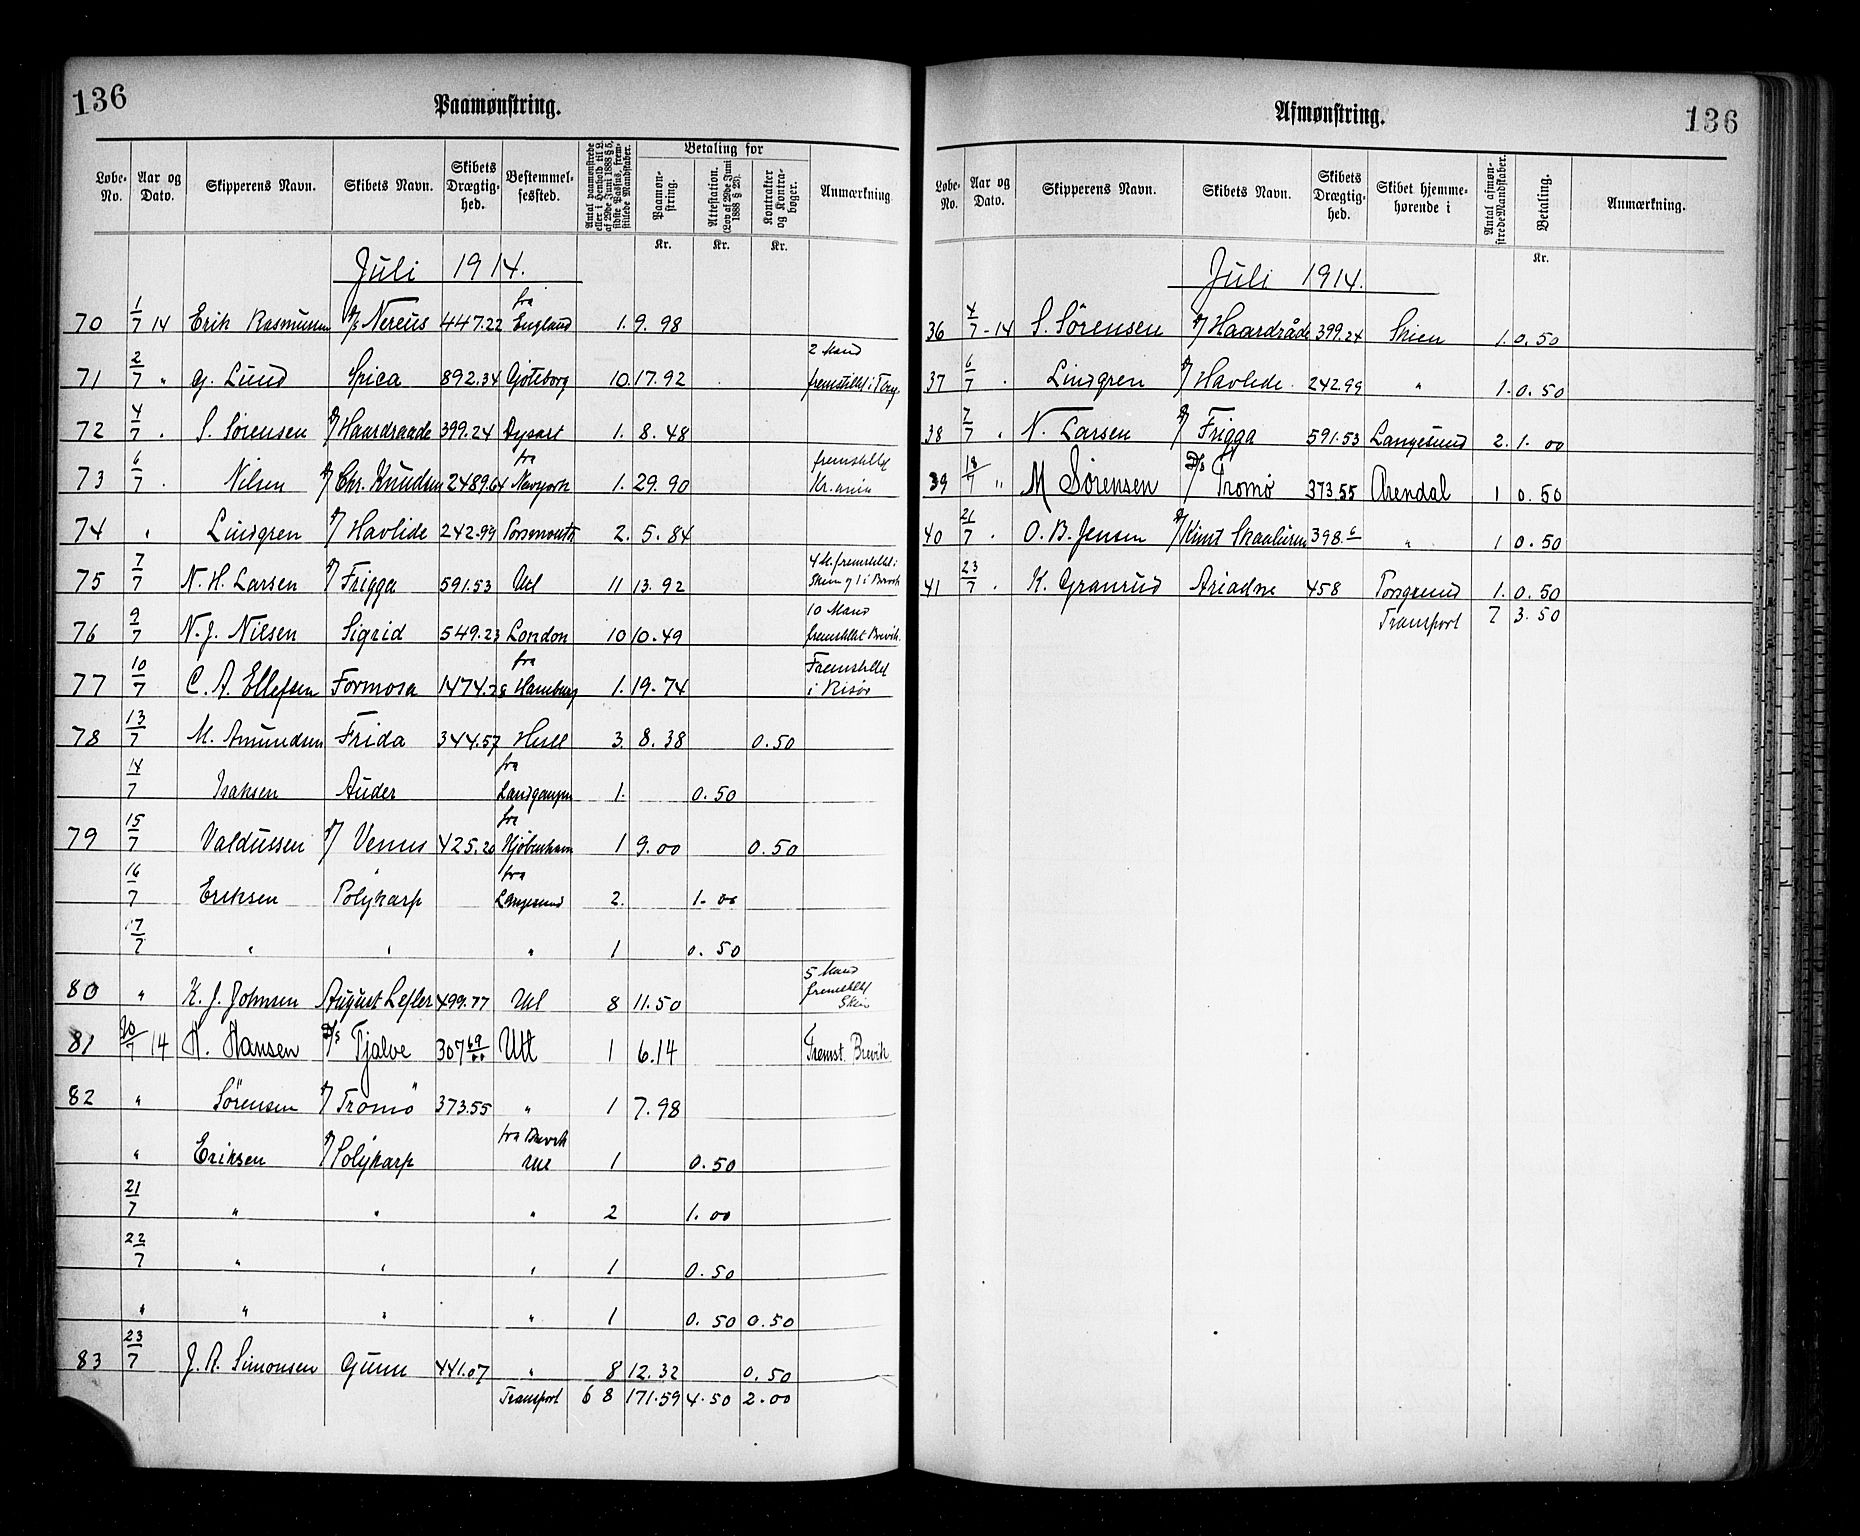 136
Paamønstring.
Løbe-No. Aar og Dato. Skipperens Navn. Skibets Navn. Skibets Drægtighed. Bestemmelsessted. Antal paamønstrede eller i Henhold til L. af 29de Juni 1888 § 5, sidste Passus, fremstillede Mandskaber. Betaling for Paamønstring. Attestation. (Lov af 29de Juni 1888 § 25). Kontrakter og Kontrabøger. Anmærkning
Kr. Kr. Kr.
Juli 1914.
70 1/7 14 Erik Rasmussen S/S Nereus 447.22 fra England 1. 9.98
71 2/7 " G. Lund Spica 892.34 Göteborg 10. 17.92 2 Mand fremstillet i
72 4/7 . S. Sörensen S/ Haardraade 399.24 Dysart 1. 8.48
73 6/7 . Nilsen S/ Chr. Knudsen 2489.64 fra Newyork 1. 29.90 fremstillet Kr.ania
74 " Lindgren S/ Havlide 242.99 Porsmouth 2. 5.84
75 7/7 N. H. Larsen S/ Frigga 591.53 Utl 11 13.92 4 M. fremstillet i Skien og 1 i Brevik
76 9/7 N. J. Nilsen Sigrid 549.23 London 10 10.49 10 Mand fremstillet Brevik.
77 10/7 C. A. Ellefsen Formosa 1474.28 fra Hamburg 1. 19.74 Fremstillet i Risör
78 13/7 M. Amundsen Frida 344.57 Hull 3. 8.38 0.50
14/7 Isaksen Auder fra 1. 0.50
79 15/7 Valdussen S/ Venus 425.20 fra Kjöbenhavn 1 9.00 0.50
16/7 Eriksen Polykarp fra Langesund 2. 1.00
17/7 " " " 1 0.50
80 " K. J. Johnsen August Lefler 499.77 Utl 8 11.50 5 Mand fremstillet Skien
81 20/7 14 H. Hansen D/S Tjalve 307 69/00 Utl 1 6.14 Fremst. Brevik
82 " Sörensen S/ Tromö 373.55 " 1 7.98
" Eriksen S/ Polykarp fra Brevik Utl 1 0.50
21/7 " " " 2 1.00
22/7 " " " 1 0.50
" " " " 1 0.50 0.50
83 23/7 J. R. Simonsen Gunn 441.07 " 8 12.32 0.50
Transport 68 171.59 4.50 2.00
136
Afmønstring.
Løbe-No. Aar og Dato. Skipperens Navn. Skibets Navn. Skibets Drægtighed. Skibet hjemmehørende i Antal afmønstrede Mandskaber. Betaling. Anmærkning.
Kr.
Juli 1914.
36 4/7-14 S. Sörensen S/ Haardråde 399.24 Skien 1. 0.50
37 6/7 . Lindgren S/ Havlide. 242.99 " 1. 0.50
38 7/7 " N. Larsen S/ Frigga 591.53 Langesund 2. 1.00
39 18/7 " M Sörensen D/S Tromø 373.55 Arendal 1 0.50
40 21/7 . O. B. Jensen S/ Knut Skaaluren 398.6 " 1 0.50
41 23/7 . K. Granrud Ariadne 458 Porsgrund 1. 0.50
Transport 7 3.50